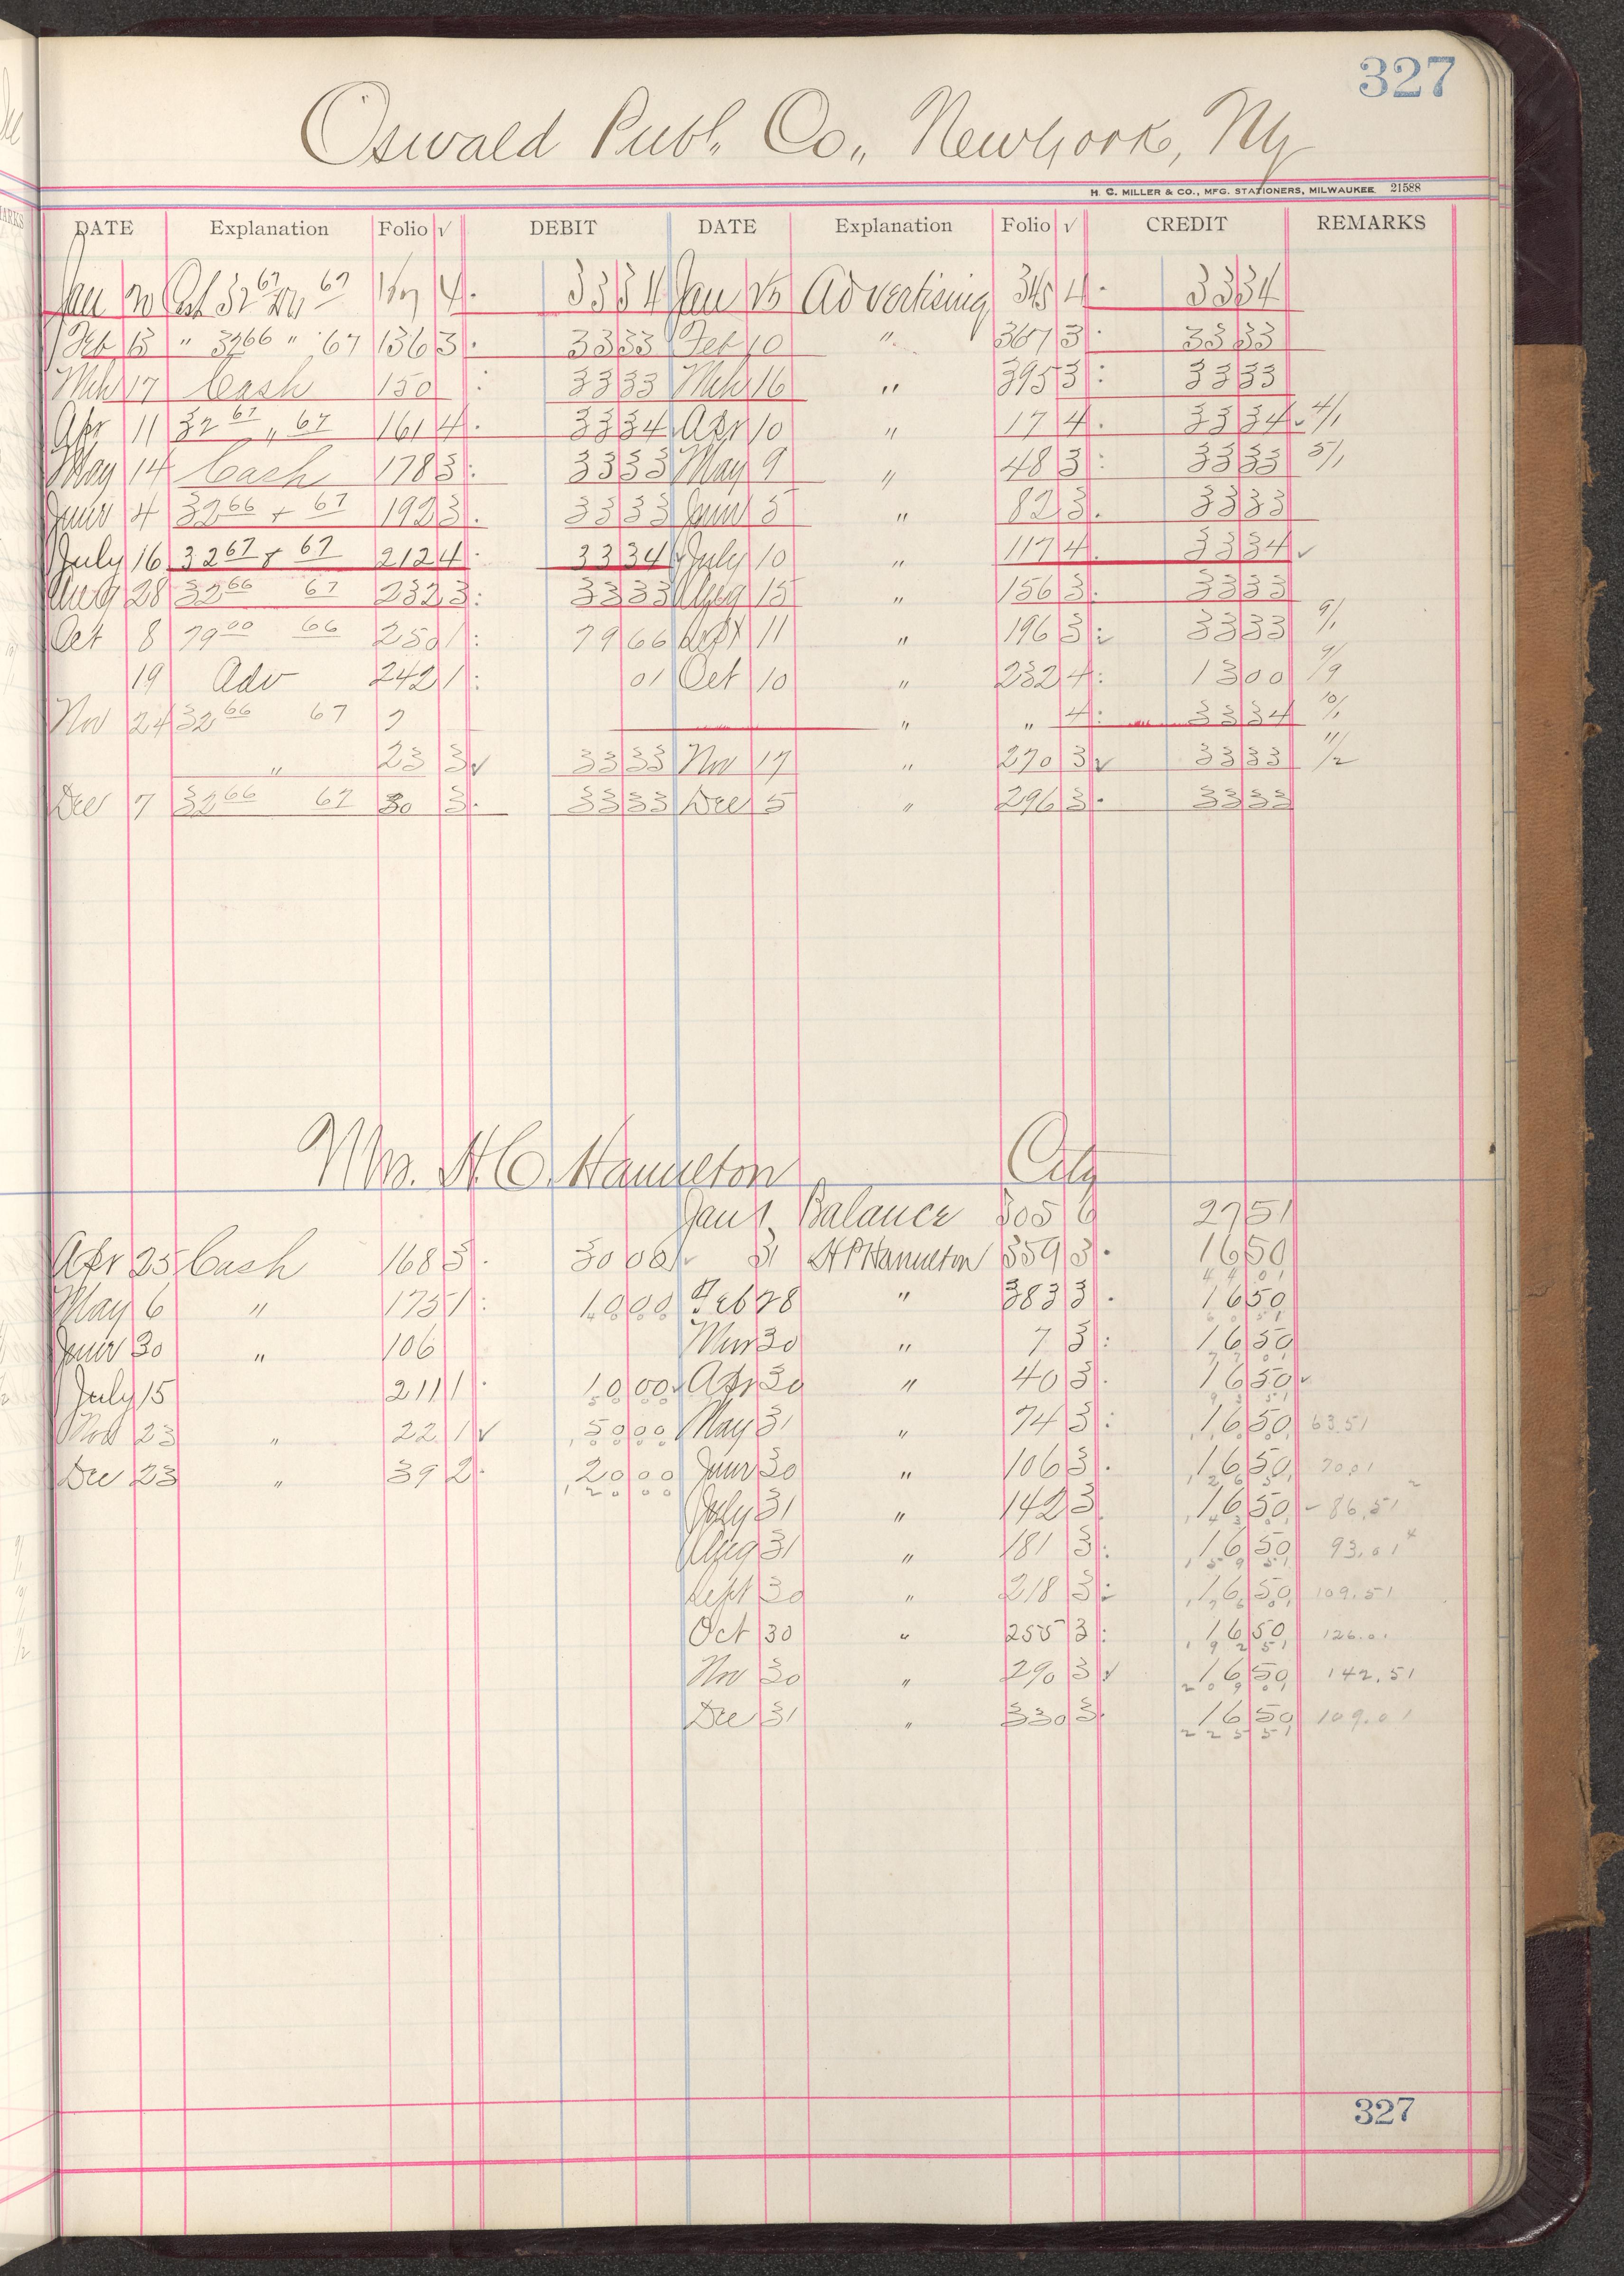 327
Oswald Publ. Co., New York, Ny
H. C. MILLER & CO., MFG. STATIONERS, MILWAUKEE 21588
DATE Explanation Folio √ DEBIT DATE Explanation Folio √ CREDIT REMARKS
Jan 4 33 34 Jan 15 Advertising 345 4 33 34
Feb 13 " 32 66 " 67 136 3 33 33 Feb 10 " 367 3 33 33
Mch 17 Cash 150 33 33 Mch 16 " 395 3 33 33
Apr 11 32 67 " 67 161 4 33 34 Apr 10 " 17 4 33 34 4/1
May 14 Cash 178 3 33 33 May 9 " 48 3 33 33 5/1
June 4 32 66 + 67 192 3 33 33 June 5 " 82 3 33 33
July 16 32 67 + 67 212 4 33 34 July 10 " 117 4 33 34 ✓
Aug 28 32 66 67 232 3 33 33 Aug 15 " 156 3 33 33
Oct 8 79 00 66 250 1 79 66 Sept 11 " 196 3 33 33 9/1
19 Adv 242 1 01 Oct 10 " 232 4 13 00 9/9
Nov 24 32 66 67 " " 4 33 34 10/1
" 23 3 ✓ 33 33 Nov 17 " 270 3 ✓ 33 33 11/2
Dec 7 32 66 67 30 3 33 33 Dec 5 " 296 3 33 33
Mrs. H. C. Hamilton City
Jan 1 Balance 305 6 27 51
Apr 25 Cash 168 3 30 00 31 H P Hamilton 359 3 16 50
44 01
May 6 " 175 1 10 00 Feb 28 " 383 3 16 50
40 00 60 51
June 30 " 106 Mar 30 " 7 3 16 50
77 01
July 15 211 1 10 00 Apr 30 " 40 3 16 50 ✓
50 00 93 51
Nov 23 " 22 1 ✓ 50 00 May 31 " 74 3 16 50 63.51
100 00 110 01
Dec 23 " 39 2 20 00 June 30 " 106 3 16 50 70 01
120 00 126 51
July 31 " 142 3 16 50 86.51
143 01
Aug 31 " 181 3 16 50 93.01
159 51
Sept 30 " 218 3 16 50 109.51
176 01
Oct 30 " 255 3 16 50 126.01
192 51
Nov 30 " 290 3 ✓ 16 50 142.51
209 01
Dec 31 " 330 3 16 50 109.01
225 51
327